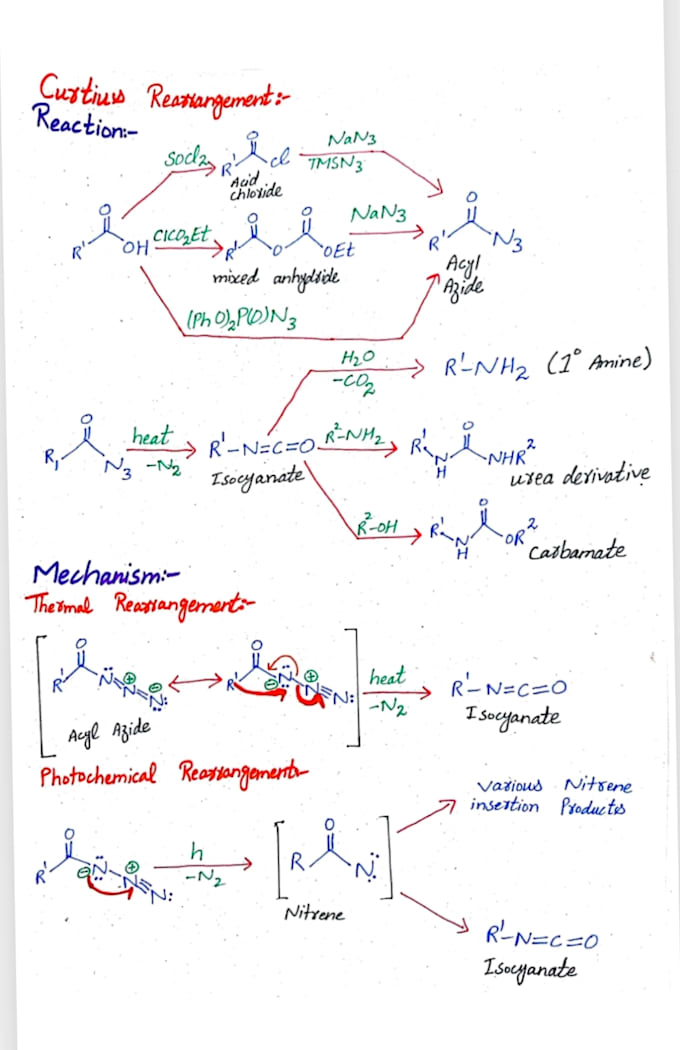 Curtius Rearrangement:-
Reaction:-
SOCl2
R' O Cl
Acid chloride
NaN3
TMSN3
R' O OH
ClCO2Et
R' O O O OEt
mixed anhydride
NaN3
R' O N3
Acyl Azide
(PhO)2P(O)N3
H2O
-CO2
R'-NH2 (1° Amine)
R, O N3
heat
-N2
R'-N=C=O
Isocyanate
R²-NH2
R' N H O NHR²
urea derivative
R²-OH
R' N H O OR²
Carbamate
Mechanism:-
Thermal Rearrangement:-
R' O N=N=N:
⊕ ⊖
Acyl Azide
R' O N-N≡N:
⊖ ⊕
heat
-N2
R'-N=C=O
Isocyanate
Photochemical Rearrangement:-
R' O N-N≡N:
⊖ ⊕
h
-N2
R O N:
Nitrene
various Nitrene
insertion Products
R'-N=C=O
Isocyanate